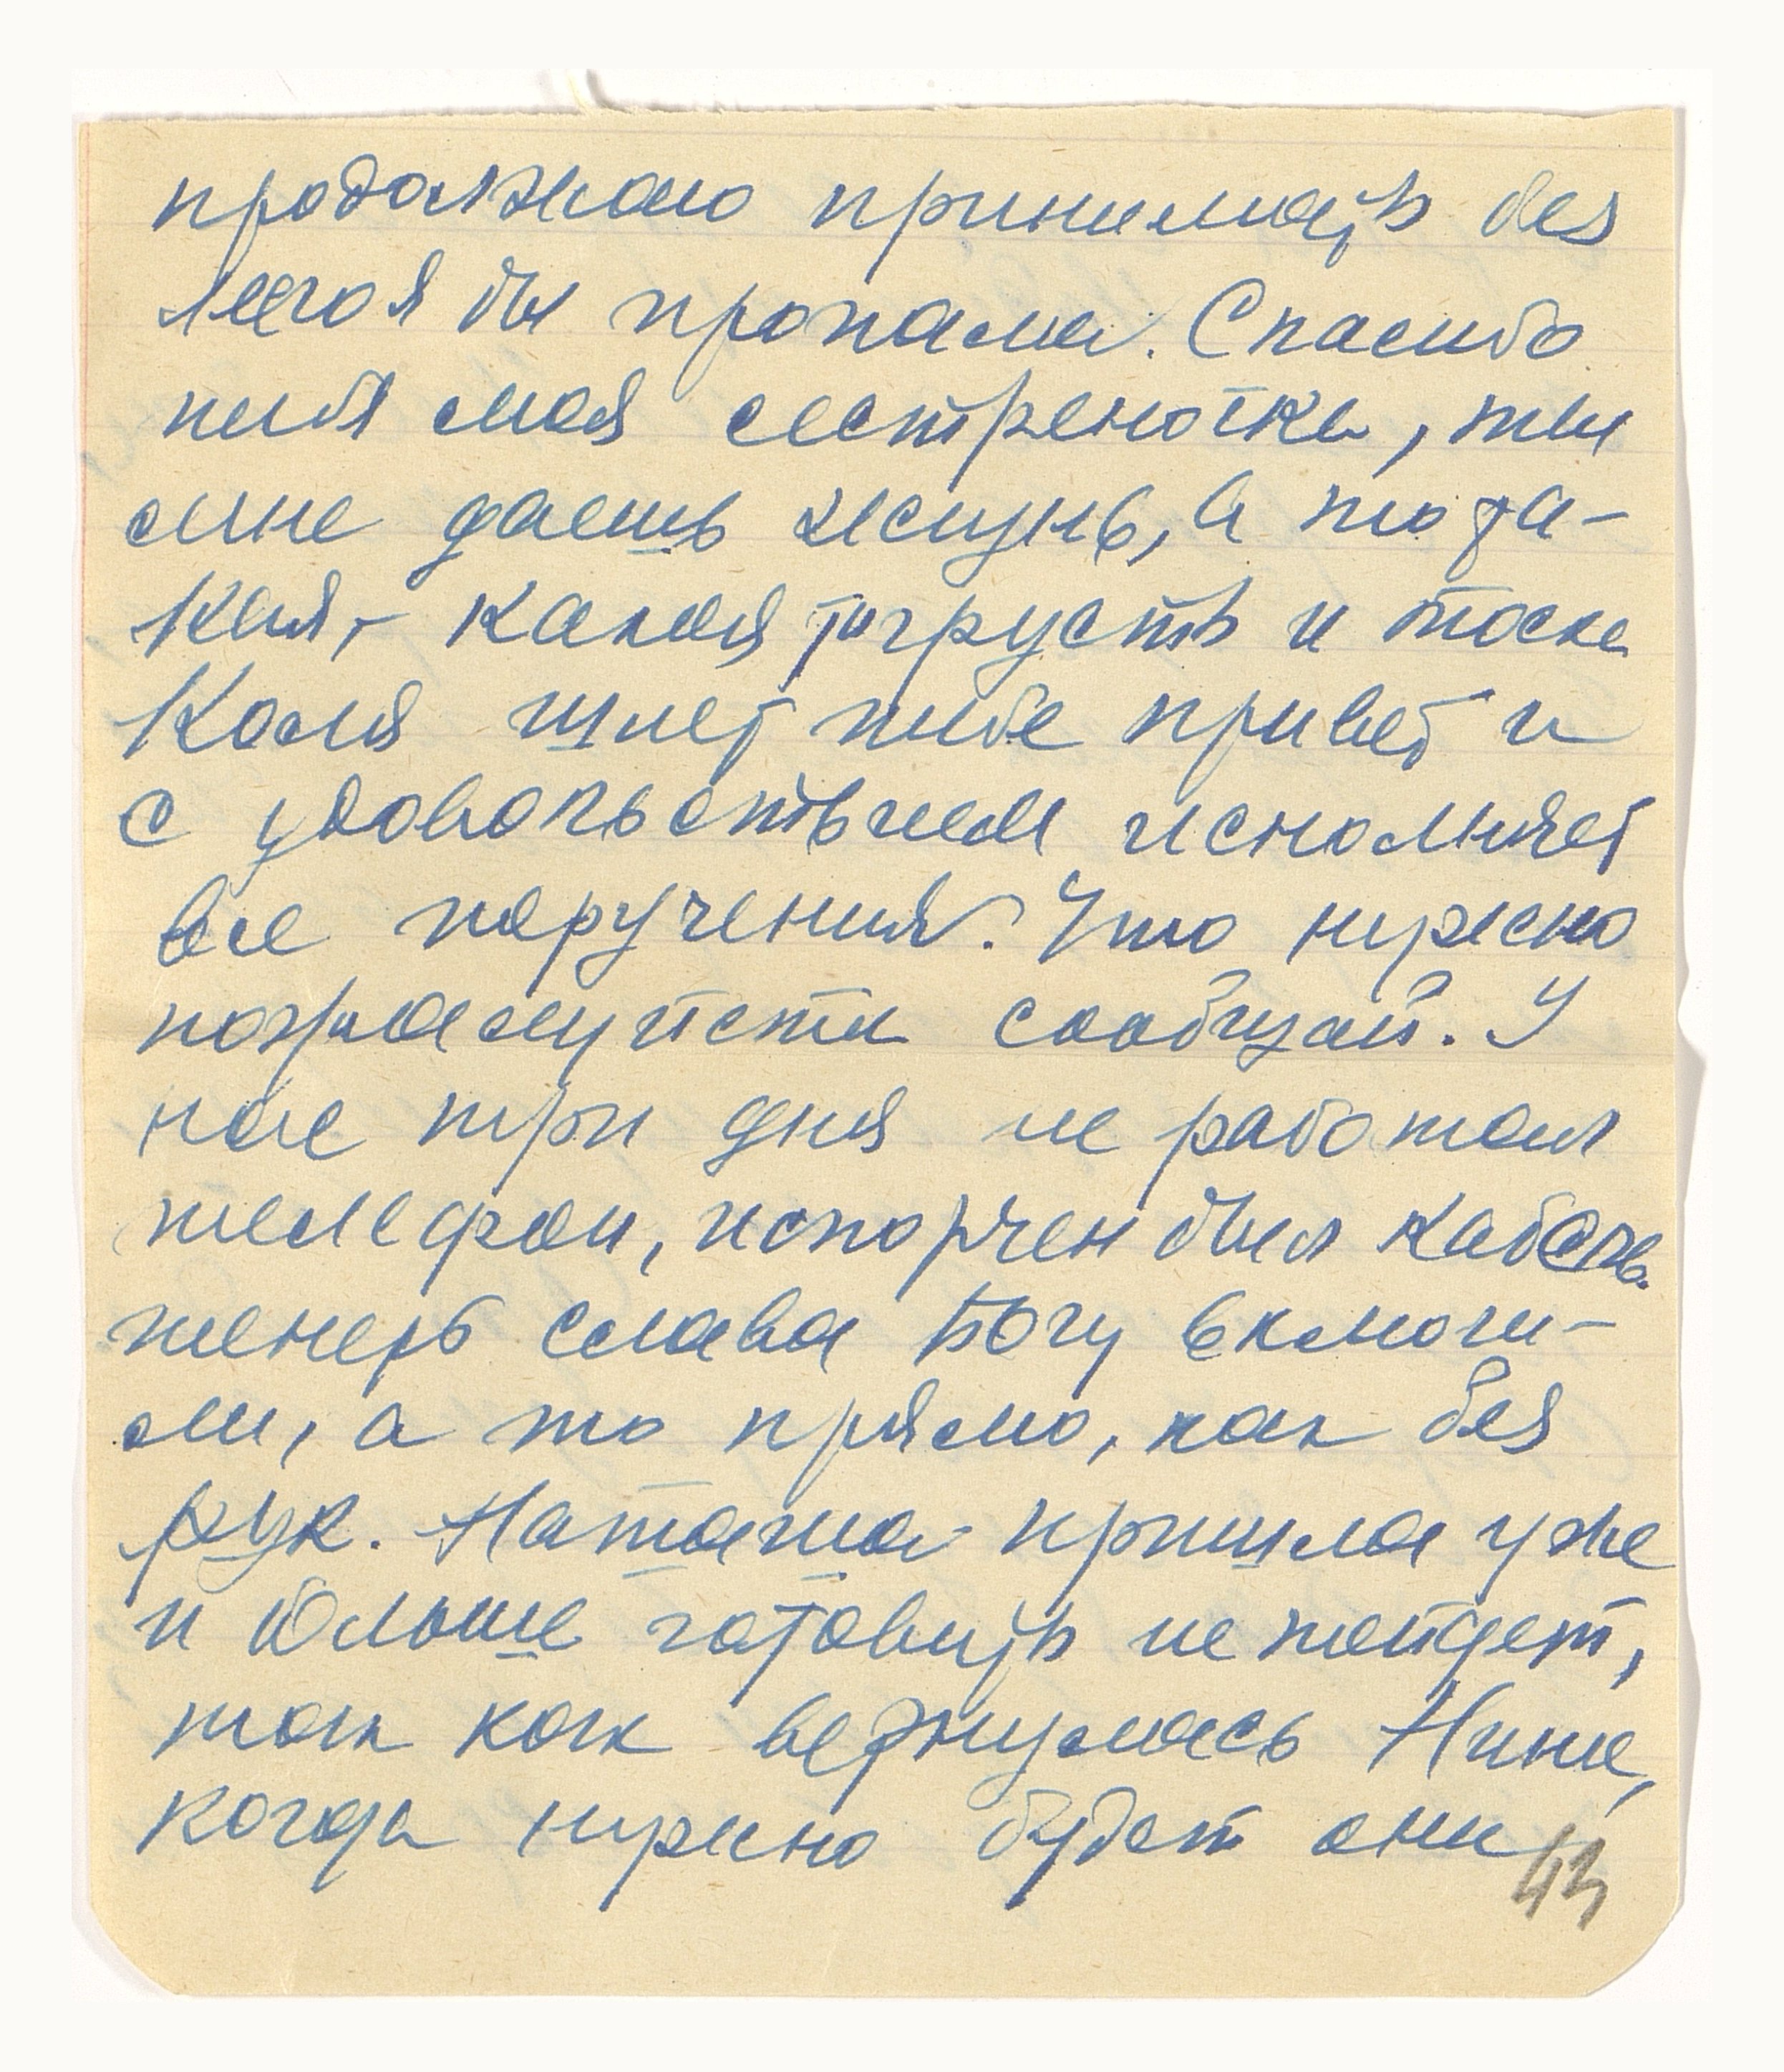 продолжаю принимать без
него я бы пропала. Спасибо
тибя моя сестреночка, ты
мне даешь жизнь, а то та-
кая, - какая то грусть и тоска
Коля шлет тибе привет и
с удовольствием исполняет
все поручения. Что нужно
пожалуйста сообщай. У
нас три дня не работал
телефон, испорчен был кабель.
теперь слава Богу включи-
ли, а то прямо, как без
рук. Наташа пришла уже
и больше готовить не пойдет,
так как вернулась Нина,
когда нужно будет они
43